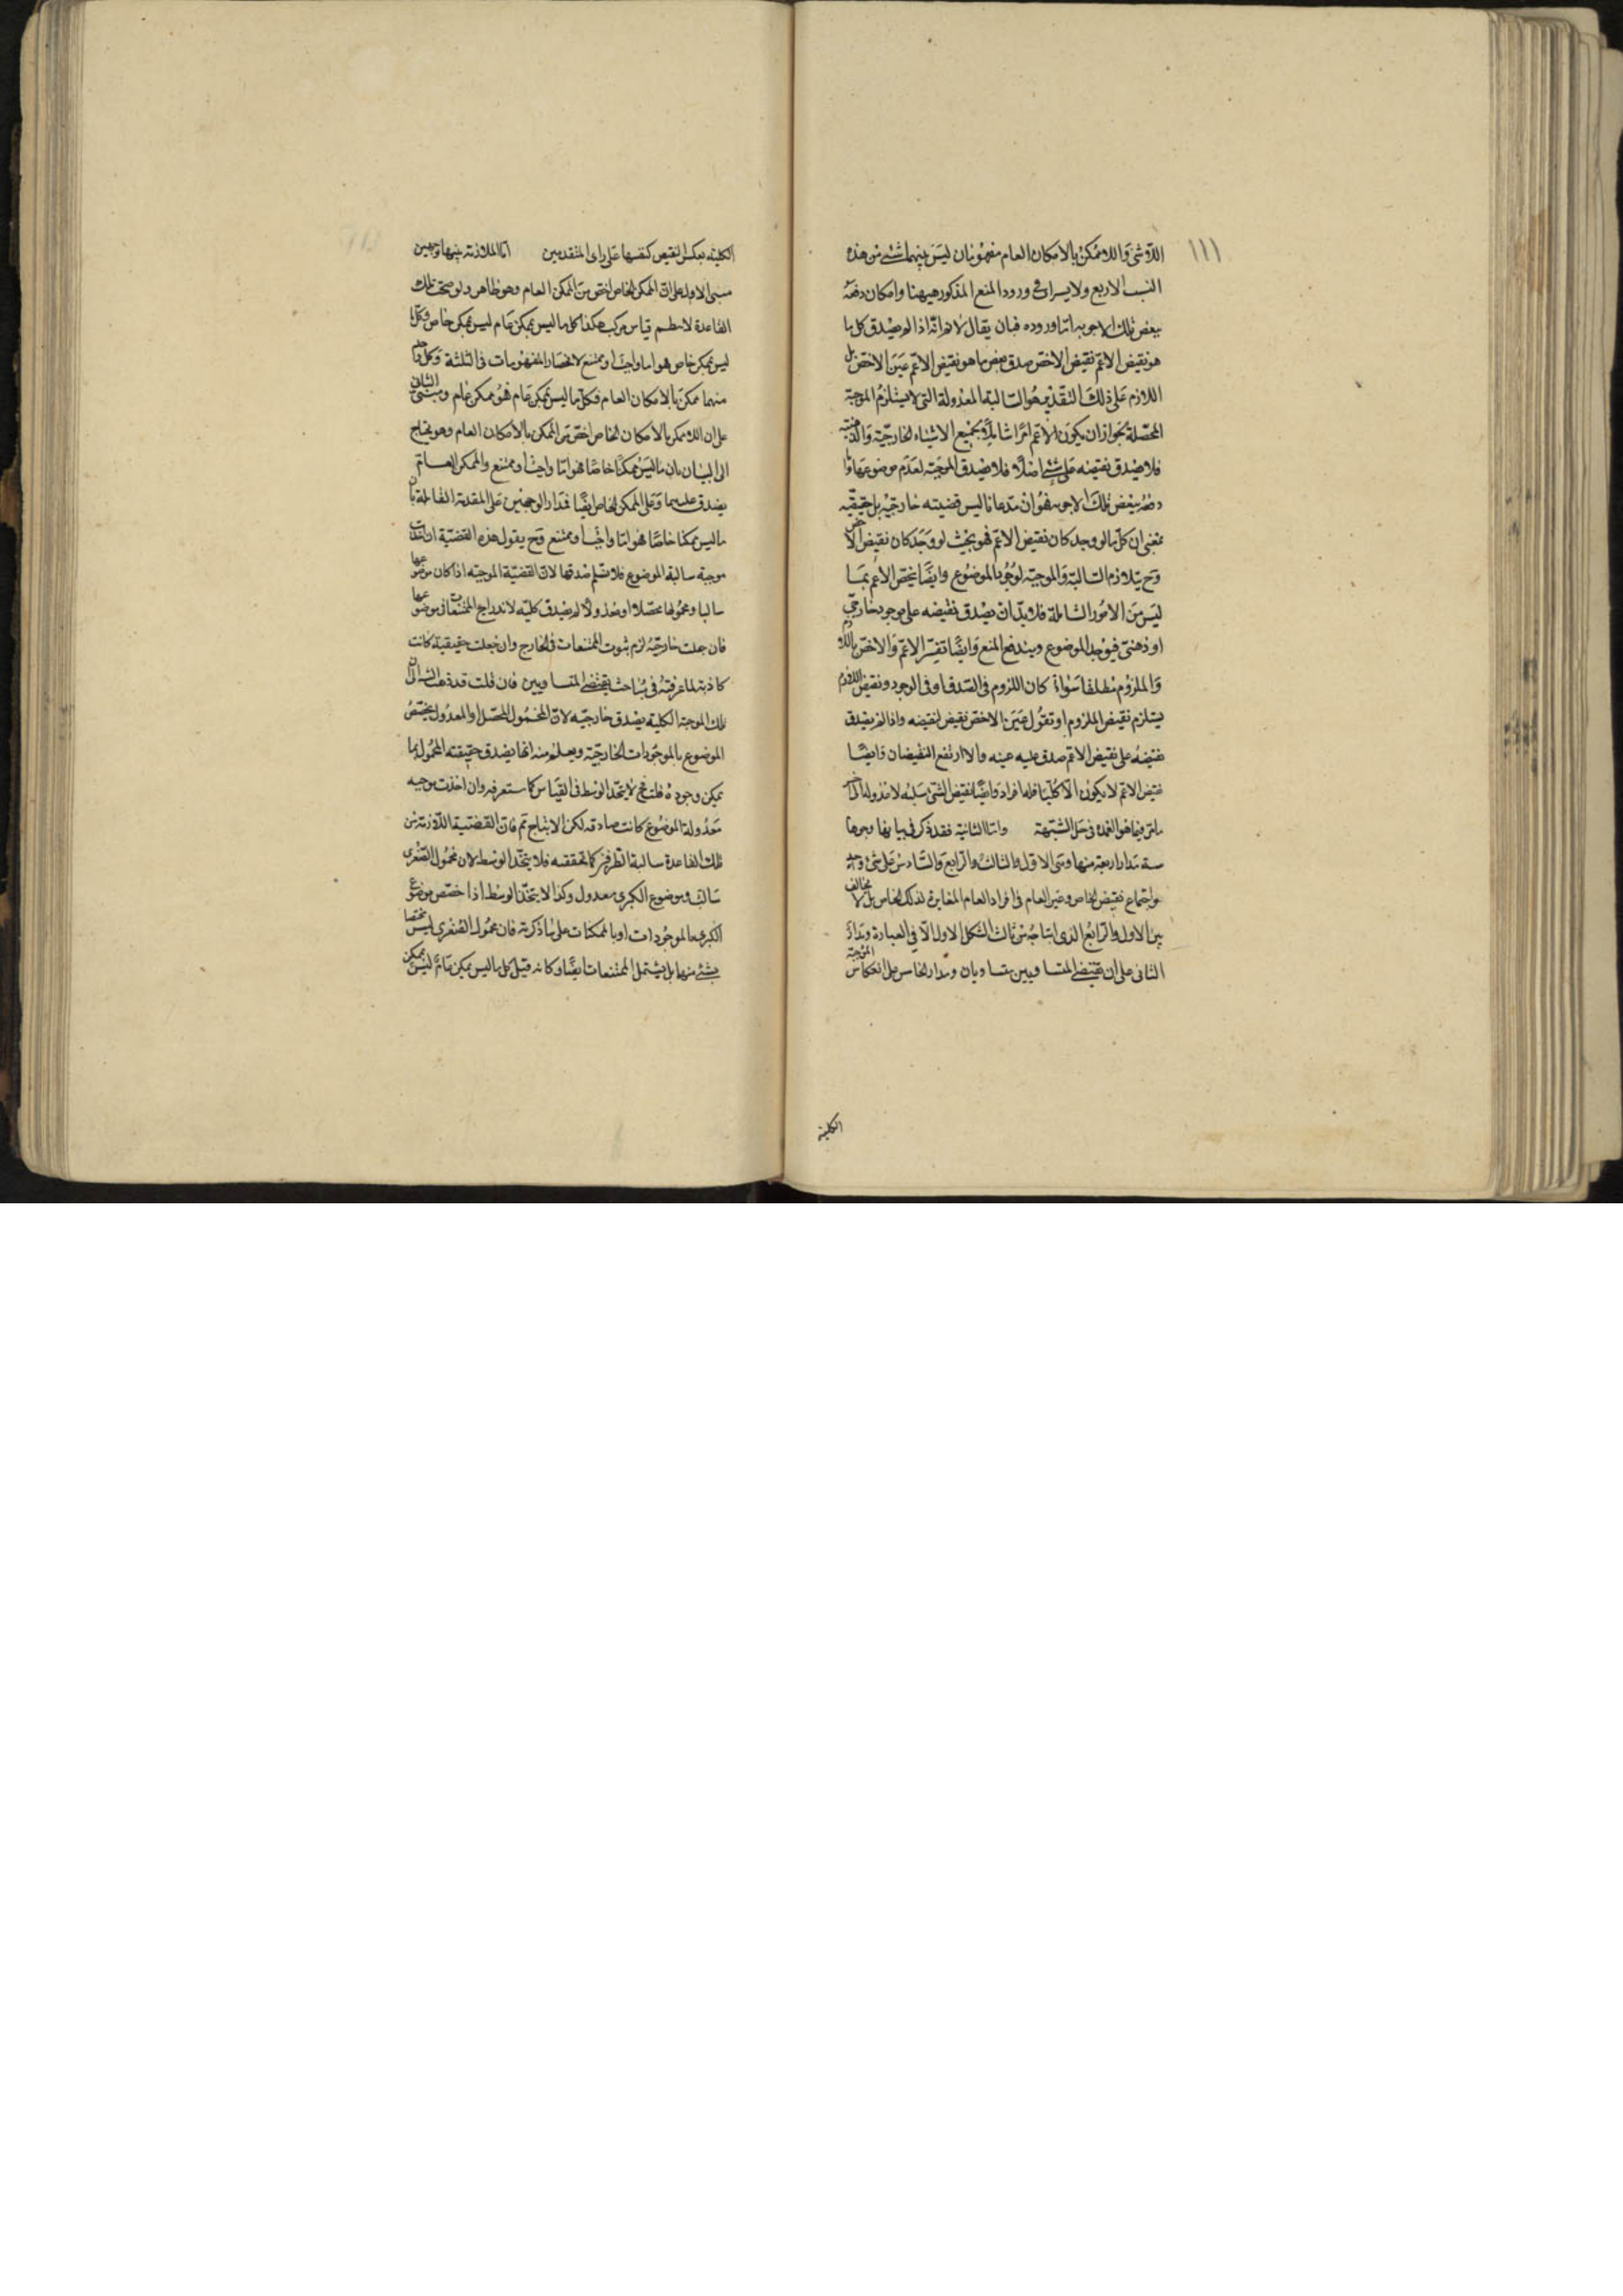 ١١١
اللاشئ واللاممكن بالامكان العام مفهومان ليس بينهما شئ من هذه
النسب الاربع ولا يسراى فى ورود المنع المذكور هيهنا وامكان دفعه
ببعض تلك الاجوبه اما وروده فبان يقال لانم انه اذا لم يصدق كل ما
هو نقيض الاعم نقيض الاخص صدق بعض ما هو نقيض الاعم عين الاخص بل
اللازم على ذلك التقدير هو السالبة المعدولة التى لا يستلزم الموجبة
المحصلة لجواز ان يكون الاعم امرا شاملا لجميع الاشياء الخارجية والذهنية
فلا يصدق نقيضه على شئ اصلا فلا يصدق الموجبة لعدم موضوعها واما
دفعه ببعض تلك الاجوبه فهو ان مدعانا ليس قضيته خارجيه بل حقيقيه
بمعنى ان كل ما لو وجد كان نقيض الاعم فهو بحيث لو وجد كان نقيض الاخص
وح يتلازم السالبة والموجبة لوجود الموضوع وايضا يختص الاعم بما
ليس من الامور الشاملة فلا بد ان يصدق نقيضه على موجود خارجى
او ذهنى فيوجد الموضوع ويندفع المنع وايضا تفسر الاعم والاخص باللازم
والملزوم مطلقا سواء كان اللزوم فى الصدق او فى الوجود ونقيض اللازم
يستلزم نقيض الملزوم او تقول عين الاخص نقيض لنقيضه واذا لم يصدق
نقيضه على نقيض الاعم صدق عليه عينه والا ارتفع النقيضان وايضا
نقيض الاعم لا يكون الا كليا فله افراد وايضا نقيض الشئ سلبه لا عدوله
ما مر فيما هو العمدة فى حل الشبهة واما الثانية فقد ذكر فى بيانها وجوها
ستة مدار اربعة منها وهى الاول والثالث والرابع والسادس على شئ واحد
هو اجتماع نقيض الخاص وعين العام فى افراد العام المغايرة لذلك الخاص بل لا مخالف
بين الاول والرابع الذى انتاجه من ثالث الشكل الاول الا فى العبارة ومدار
الثانى على ان نقيضى المتساويين متساويان ومدار الخامس على انعكاس الموجبة
الكلية
الكلية بعكس النقيض كنفسها على راى المتقدمين اما الملازمة بينها وجهين
مبنى الاول على ان الممكن الخاص اخص من الممكن العام وهو ظاهر ولو صحت تلك
القاعدة لانتظم قياس مركب هكذا كل ما ليس بممكن عام ليس بممكن خاص وكل ما
ليس بممكن خاص هو اما واجب او ممتنع لانحصار المفهومات فى الثلثة وكل واحد
منهما ممكن بالامكان العام فكل ما ليس بممكن عام فهو ممكن عام ومبنى الثانى
على ان اللاممكن بالامكان الخاص اخص من الممكن بالامكان العام وهو يحتاج
الى البيان بان ما ليس ممكنا خاصا فهو اما واجب او ممتنع والممكن العام
يصدق عليهما وعلى الممكن الخاص ايضا فمدار الوجهين على المقدمة القائلة بان
ما ليس ممكنا خاصا فهو اما واجب او ممتنع وح يقول هذه القضية ان اخذت
موجبة سالبة الموضوع فلا نسلم صدقها لان القضية الموجبه اذا كان موضوعها
سالبا ومحمولها محصلا او معدولا لم يصدق كليه لاندراج الممتنعات فى موضوعها
فان جعلت خارجيه لزم ثبوت الممتنعات فى الخارج وان جعلت حقيقية كانت
كاذبة لما عرفته فى مباحث نقيضى المتساويين فان قلت قد ذهبت الى ان
تلك الموجبة الكلية يصدق خارجيه لان المحمول المحصل والمعدول يختص
الموضوع بالموجودات الخارجية ويعلم منه انها يصدق حقيقته المحمول بما
يمكن وجوده قلت فح لا يتحد الوسط فى القياس كما ستعرفه وان اخذت موجبه
معدولة الموضوع كانت صادقه لكن الانتاج ثم فان القضية اللازمة من
تلك القاعدة سالبة الطرفين كما تحققته فلا يتحد الوسط لان محمول الصغرى
سالب وموضوع الكبرى معدول وكذا لا يتحد الوسط اذا خصص موضوع
الكبرى بالموجودات او بالممكنات على ما ذكرته فان محمول الصغرى ليس مختصا
بشئ منها بل يشتمل الممتنعات ايضا وكانه قيل كل ما ليس بممكن عام ليس بممكن